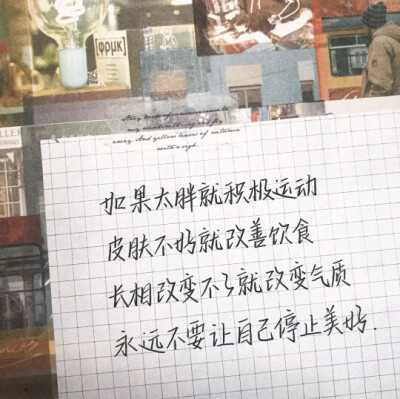 φρμκ
away. And yellow leaves of autumn
with a sigh.
如果太胖就积极运动
皮肤不好就改善饮食
长相改变不了就改变气质
永远不要让自己停止美好.